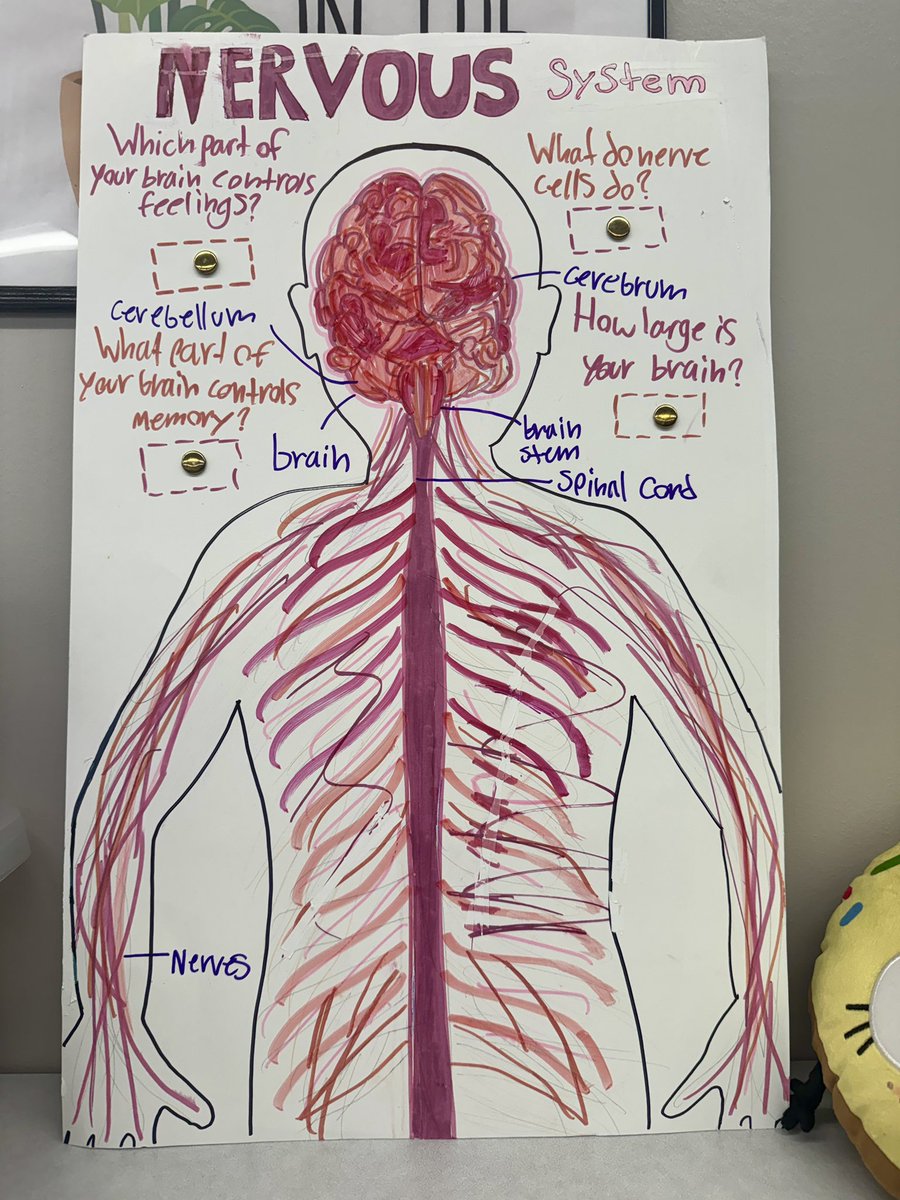 NERVOUS System
Which part of
your brain controls
feelings?
What do nerve
cells do?
cerebellum
cerebrum
What part of
your brain controls
memory?
How large is
your brain?
brain
brain
stem
Spinal Cord
Nerves